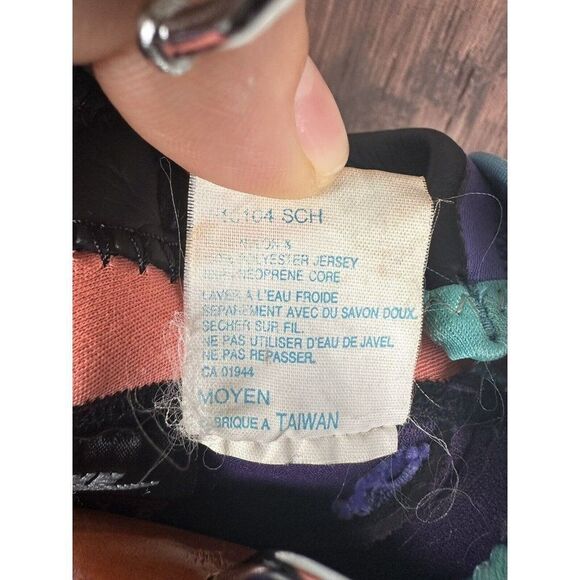 104 SCH
POLYESTER JERSEY
NEOPRENE CORE
LAVER A L'EAU FROIDE
SEPAREMENT AVEC DU SAVON DOUX.
SECHER SUR FIL.
NE PAS UTILISER D'EAU DE JAVEL.
NE PAS REPASSER.
CA 01944
MOYEN
FABRIQUE A TAIWAN